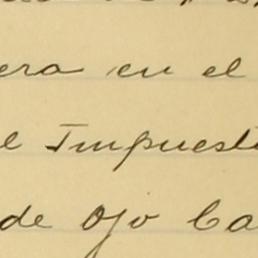 era en el
l Impuest
de Ojo Ca